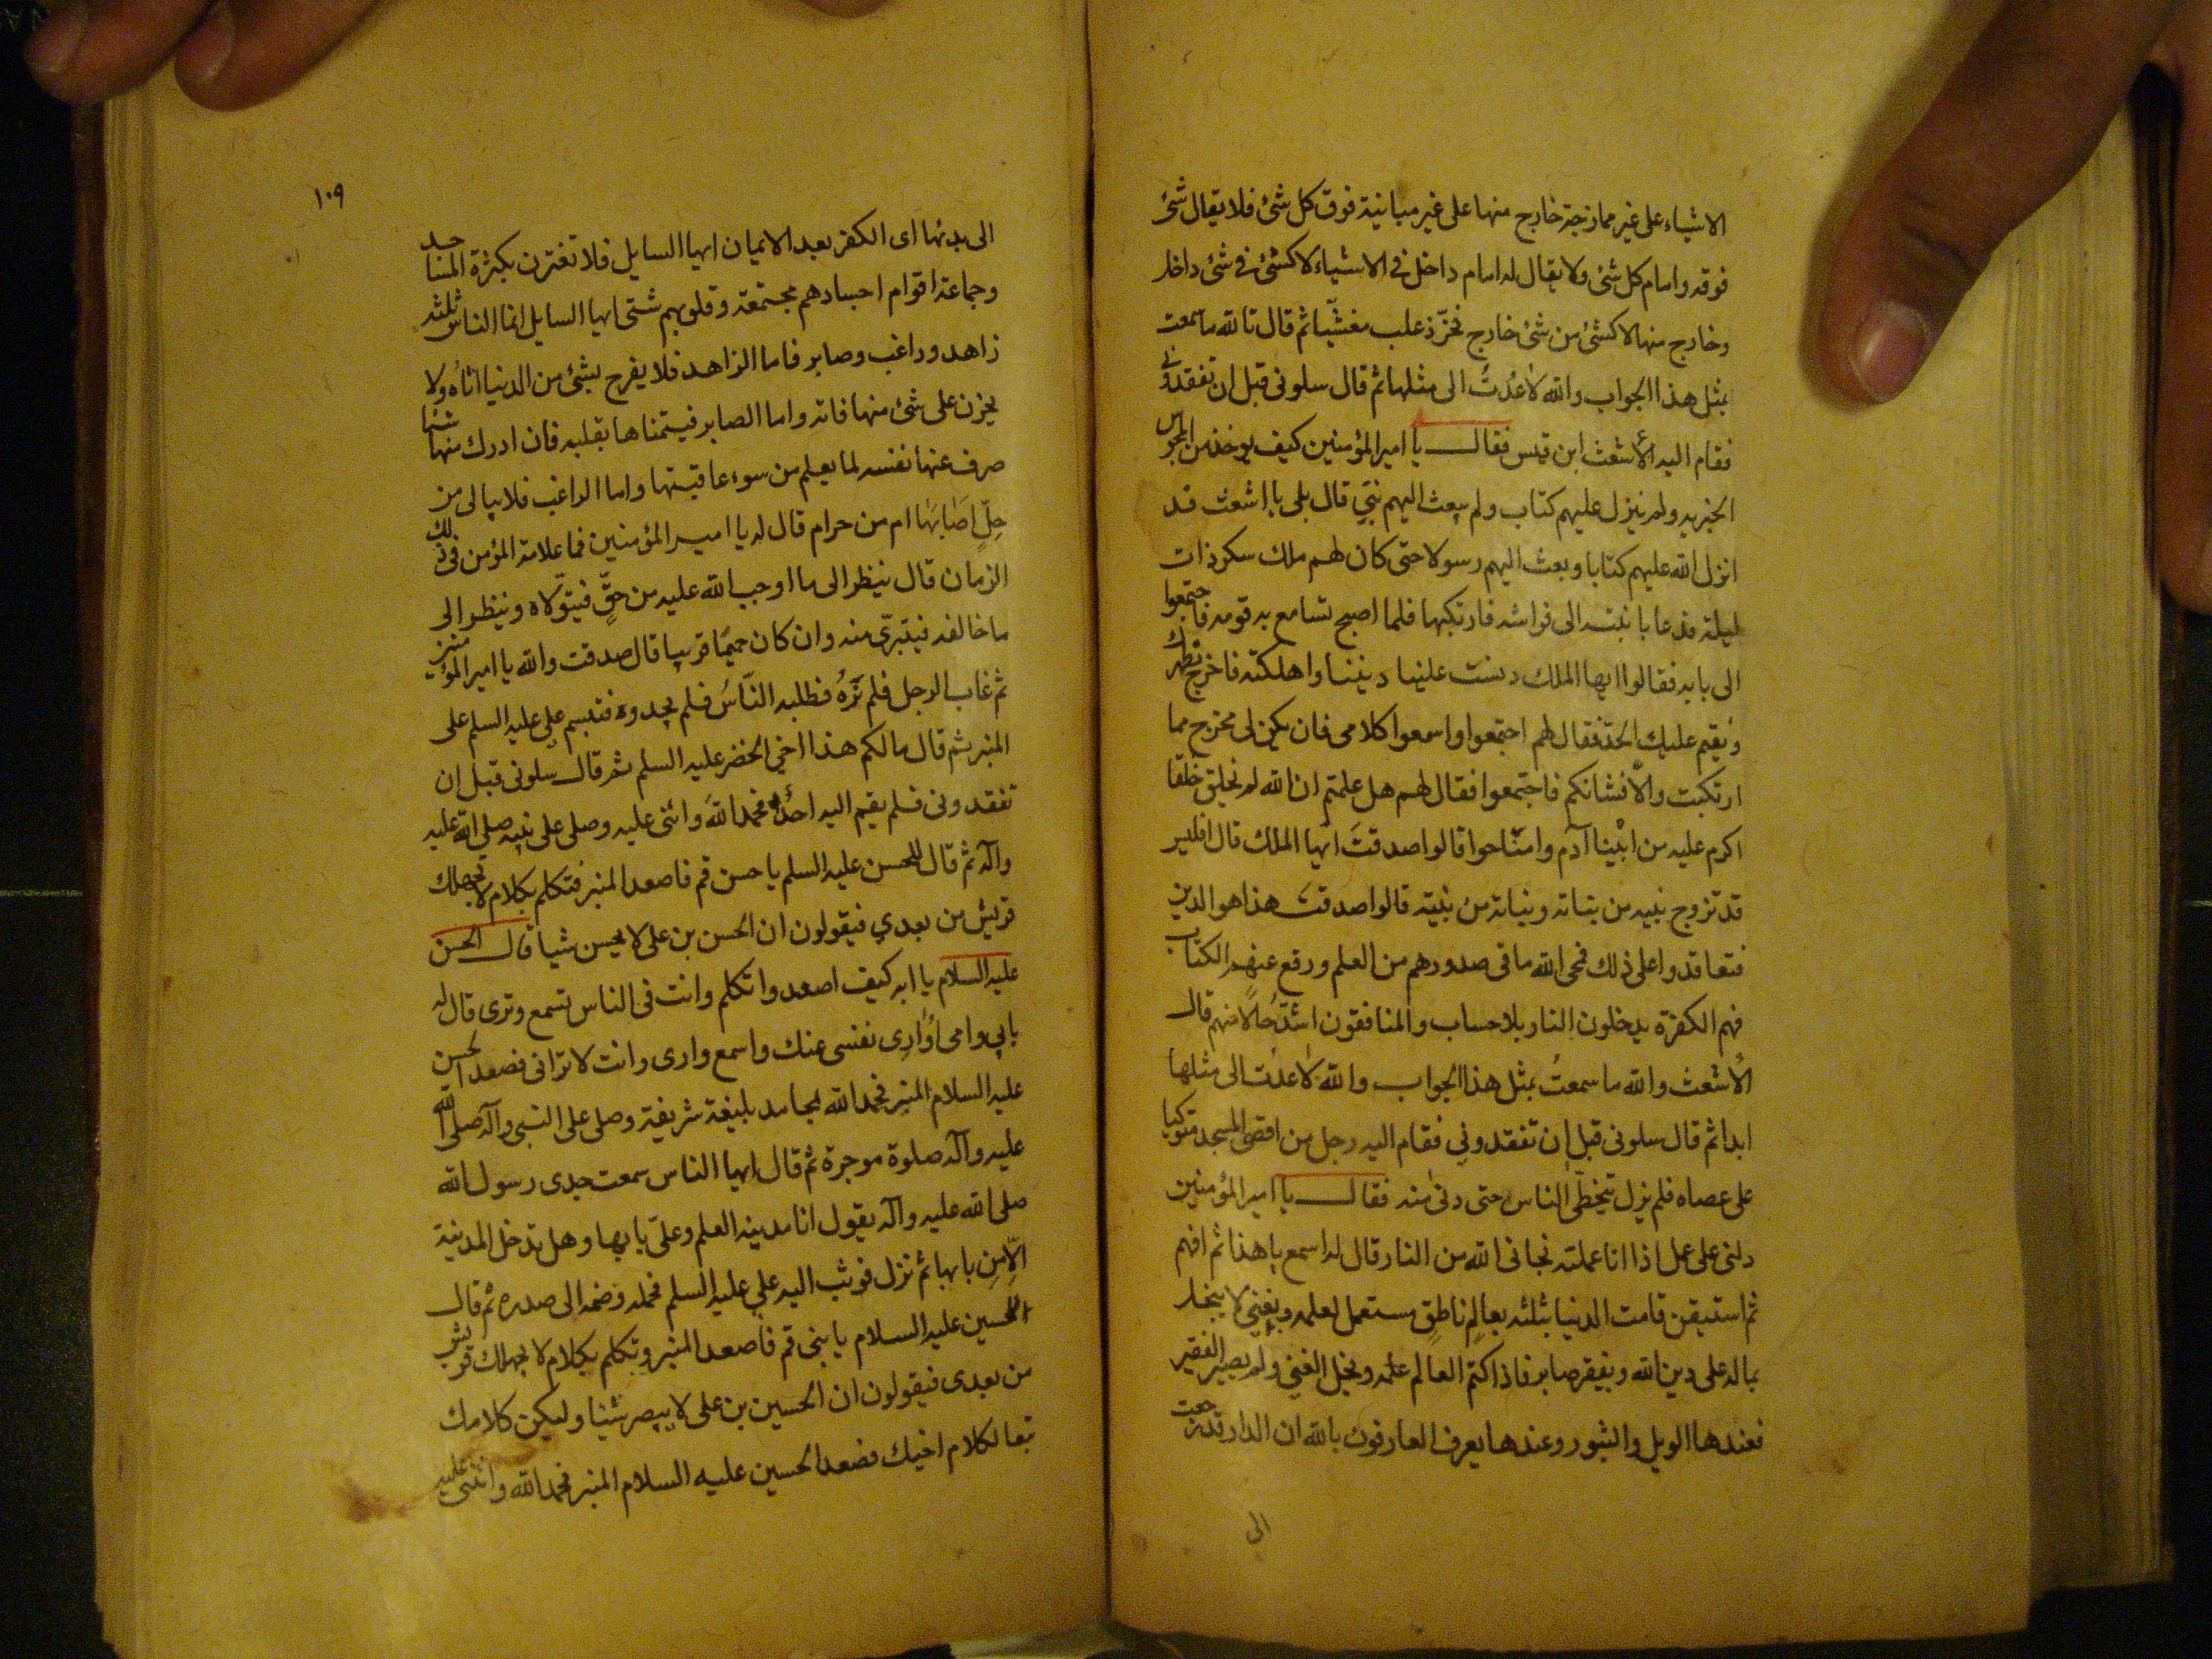 الاشياء على غير ممازجة خارج منها على غير مباينة فوق كل شئ فلا يقال شئ
فوقه وامام كل شئ ولا يقال له امام داخل فى الاشياء لا كشئ فى شئ داخل
وخارج منها لا كشئ من شئ خارج فخرّ ذعلب مغشّيا ثم قال تالله ما سمعت
بمثل هذا الجواب والله لا عُدتُ الى مثلها ثم قال سلونى قبل ان تفقدونى
فقام اليه الأشعث ابن قيس فقال يا امير المؤمنين كيف يوخذ من المجوس
الجزيه ولم ينزل عليهم كتاب ولم يبعث اليهم نبىّ قال بلى يا اشعث قد
انزل الله عليهم كتابا وبعث اليهم رسولا حتى كان لهم ملك سكر ذات
ليلة فدعا بابنته الى فراشه فارتكبها فلما اصبح تسامع به قومه فاجتمعوا
الى بابه فقالوا ايها الملك دنست علينا ديننا واهلكته فاخرج نطهرك
ونقيم عليك الحد فقال لهم اجتمعوا واسمعوا كلامى فان يكن لى مخرج مما
ارتكبت والّا فشانكم فاجتمعوا فقال لهم هل علمتم ان الله لم يخلق خلقا
اكرم عليه من ابينا آدم وامنّا حوا قالوا صدقتَ ايها الملك قال افليس
قد تزوج بنيه من بناته وبناته من بنيه قالوا صدقت هذا هو الدين
فتعاقدوا على ذلك فمحى الله ما فى صدورهم من العلم ورفع عنهم الكتاب
فهم الكفرة يدخلون النار بلا حساب والمنافقون اشدّ حالًا منهم قال
الأشعث والله ما سمعتُ بمثل هذا الجواب والله لا عدُت الى مثلها
ابدا ثم قال سلونى قبل ان تفقدونى فقام اليه رجل من اقصى المسجد متوكيا
على عصاه فلم يزل يتخطّى الناس حتى دنى منه فقال يا امير المؤمنين
دلنى على عمل اذا انا عملته نجانى الله من النار قال له اسمع يا هذا ثم افهم
ثم استيقن قامت الدنيا بثلثه بعالمٍ ناطقٍ مستعمل لعلمه وبغنىٍ لا يبخل
بماله على دين الله وبفقر صابر فاذا كتم العالم علمه وبخل الغنى ولم يصبر الفقير
فعندها الويل والثبور وعندها يعرف العارفون بالله ان الدار قد رجعت
الى
١٠٩
الى بدئها اى الكفر بعد الايمان ايها السايل فلا تغترن بكثرة المساجد
وجماعة اقوام اجسادهم مجتمعة وقلوبهم شتى ايها السايل انما الناس ثلثه
زاهد وراغب وصابر فاما الزاهد فلا يفرح بشئ من الدنيا اتاه ولا
يحزن على شئ منها فاته واما الصابر فيتمناها بقلبه فان ادرك منها شئيا
صرف عنها نفسه لما يعلم من سوء عاقبتها واما الراغب فلا يبالى من
حلٍّ اصابها ام من حرام قال له يا امير المؤمنين فما علامة المؤمن فى ذلك
الزمان قال ينظر الى ما اوجب الله عليه من حقٍّ فيتوّلاه وينظر الى
ما خالفه فيتبرّى منه وان كان حميمًا قريبا قال صدقت والله يا امير المؤمنين
ثم غاب الرجل فلم نرَهُ فطلبه النّاسُ فلم يجدوه فتبسم على عليه السلم على
المنبر ثم قال مالكم هذا اخى الخضر عليه السلم ثم قال سلونى قبل ان
تفقدونى فلم يقم اليه احدٌ فحمد اللهَ واثنى عليه وصلى على نبيه صلى الله عليه
وآله ثم قال للحسن عليه السلم يا حسن قم فاصعد المنبر فتكلم بكلام لا تجهلك
قريش من بعدي فيقولون ان الحسن بن على لا يحسن شيا قال الحسن
عليه السلام يا ابه كيف اصعد واتكلم وانت فى الناس تسمع وترى قال له
بابى وامى أوارِى نفسى عنك واسمع وارى وانت لا ترانى فصعد الحسن
عليه السلام المنبر فحمد الله بمحامد بليغة شريفة وصلى على النبى وآله صلى الله
عليه وآله صلوة موجزة ثم قال ايها الناس سمعت جدى رسول الله
صلى الله عليه وآله يقول انا مدينه العلم وعلىّ بابها وهل تدخل المدينة
الّا مِن بابها ثم نزل فوثب اليه على عليه السلم فحمله وضمه الى صدره ثم قال
للحسين عليه السلام يا بنى قم فاصعد المنبر وتكلم بكلام لا يجهلك قريش
من بعدى فيقولون ان الحسين بن على لا يبصر شئيا وليكن كلامك
تبعا لكلام اخيك فصعد الحسين عليه السلام المنبر فحمد الله واثنى عليه